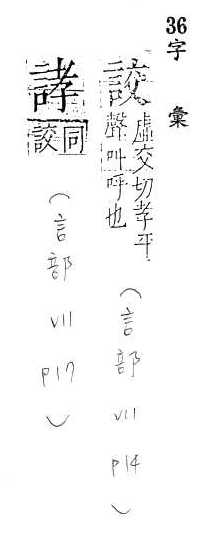 36字彙
詨虛交切孝平聲叫呼也
（言部 VII P14）
誟同詨
（言部 VII P17）